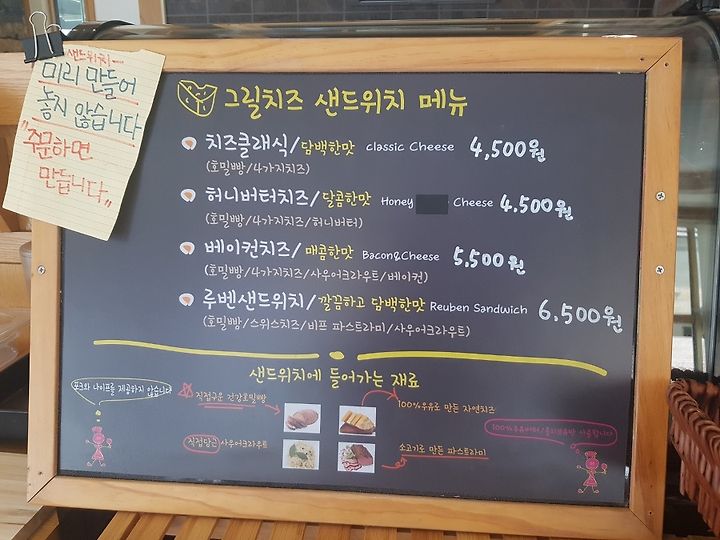 샌드위치
미리 만들어
놓지 않습니다
"주문하면
만듭니다"
그릴치즈 샌드위치 메뉴
치즈클래식/담백한맛 classic Cheese 4,500원
(호밀빵/4가지치즈)
허니버터치즈/달콤한맛 Honey Cheese 4.500원
(호밀빵/4가지치즈/허니버터)
베이컨치즈/매콤한맛 Bacon&Cheese 5,500원
(호밀빵/4가지치즈/사우어크라우트/베이컨)
루벤샌드위치/깔끔하고 담백한맛 Reuben Sandwich 6,500원
(호밀빵/스위스치즈/비프 파스트라미/사우어크라우트)
샌드위치에 들어가는 재료
포크와 나이프를 제공하지 않습니다
직접구운 건강호밀빵
100%우유로 만든 자연치즈
직접담근 사우어크라우트
소고기로 만든 파스트라미
100%우유버터/
사용합니다